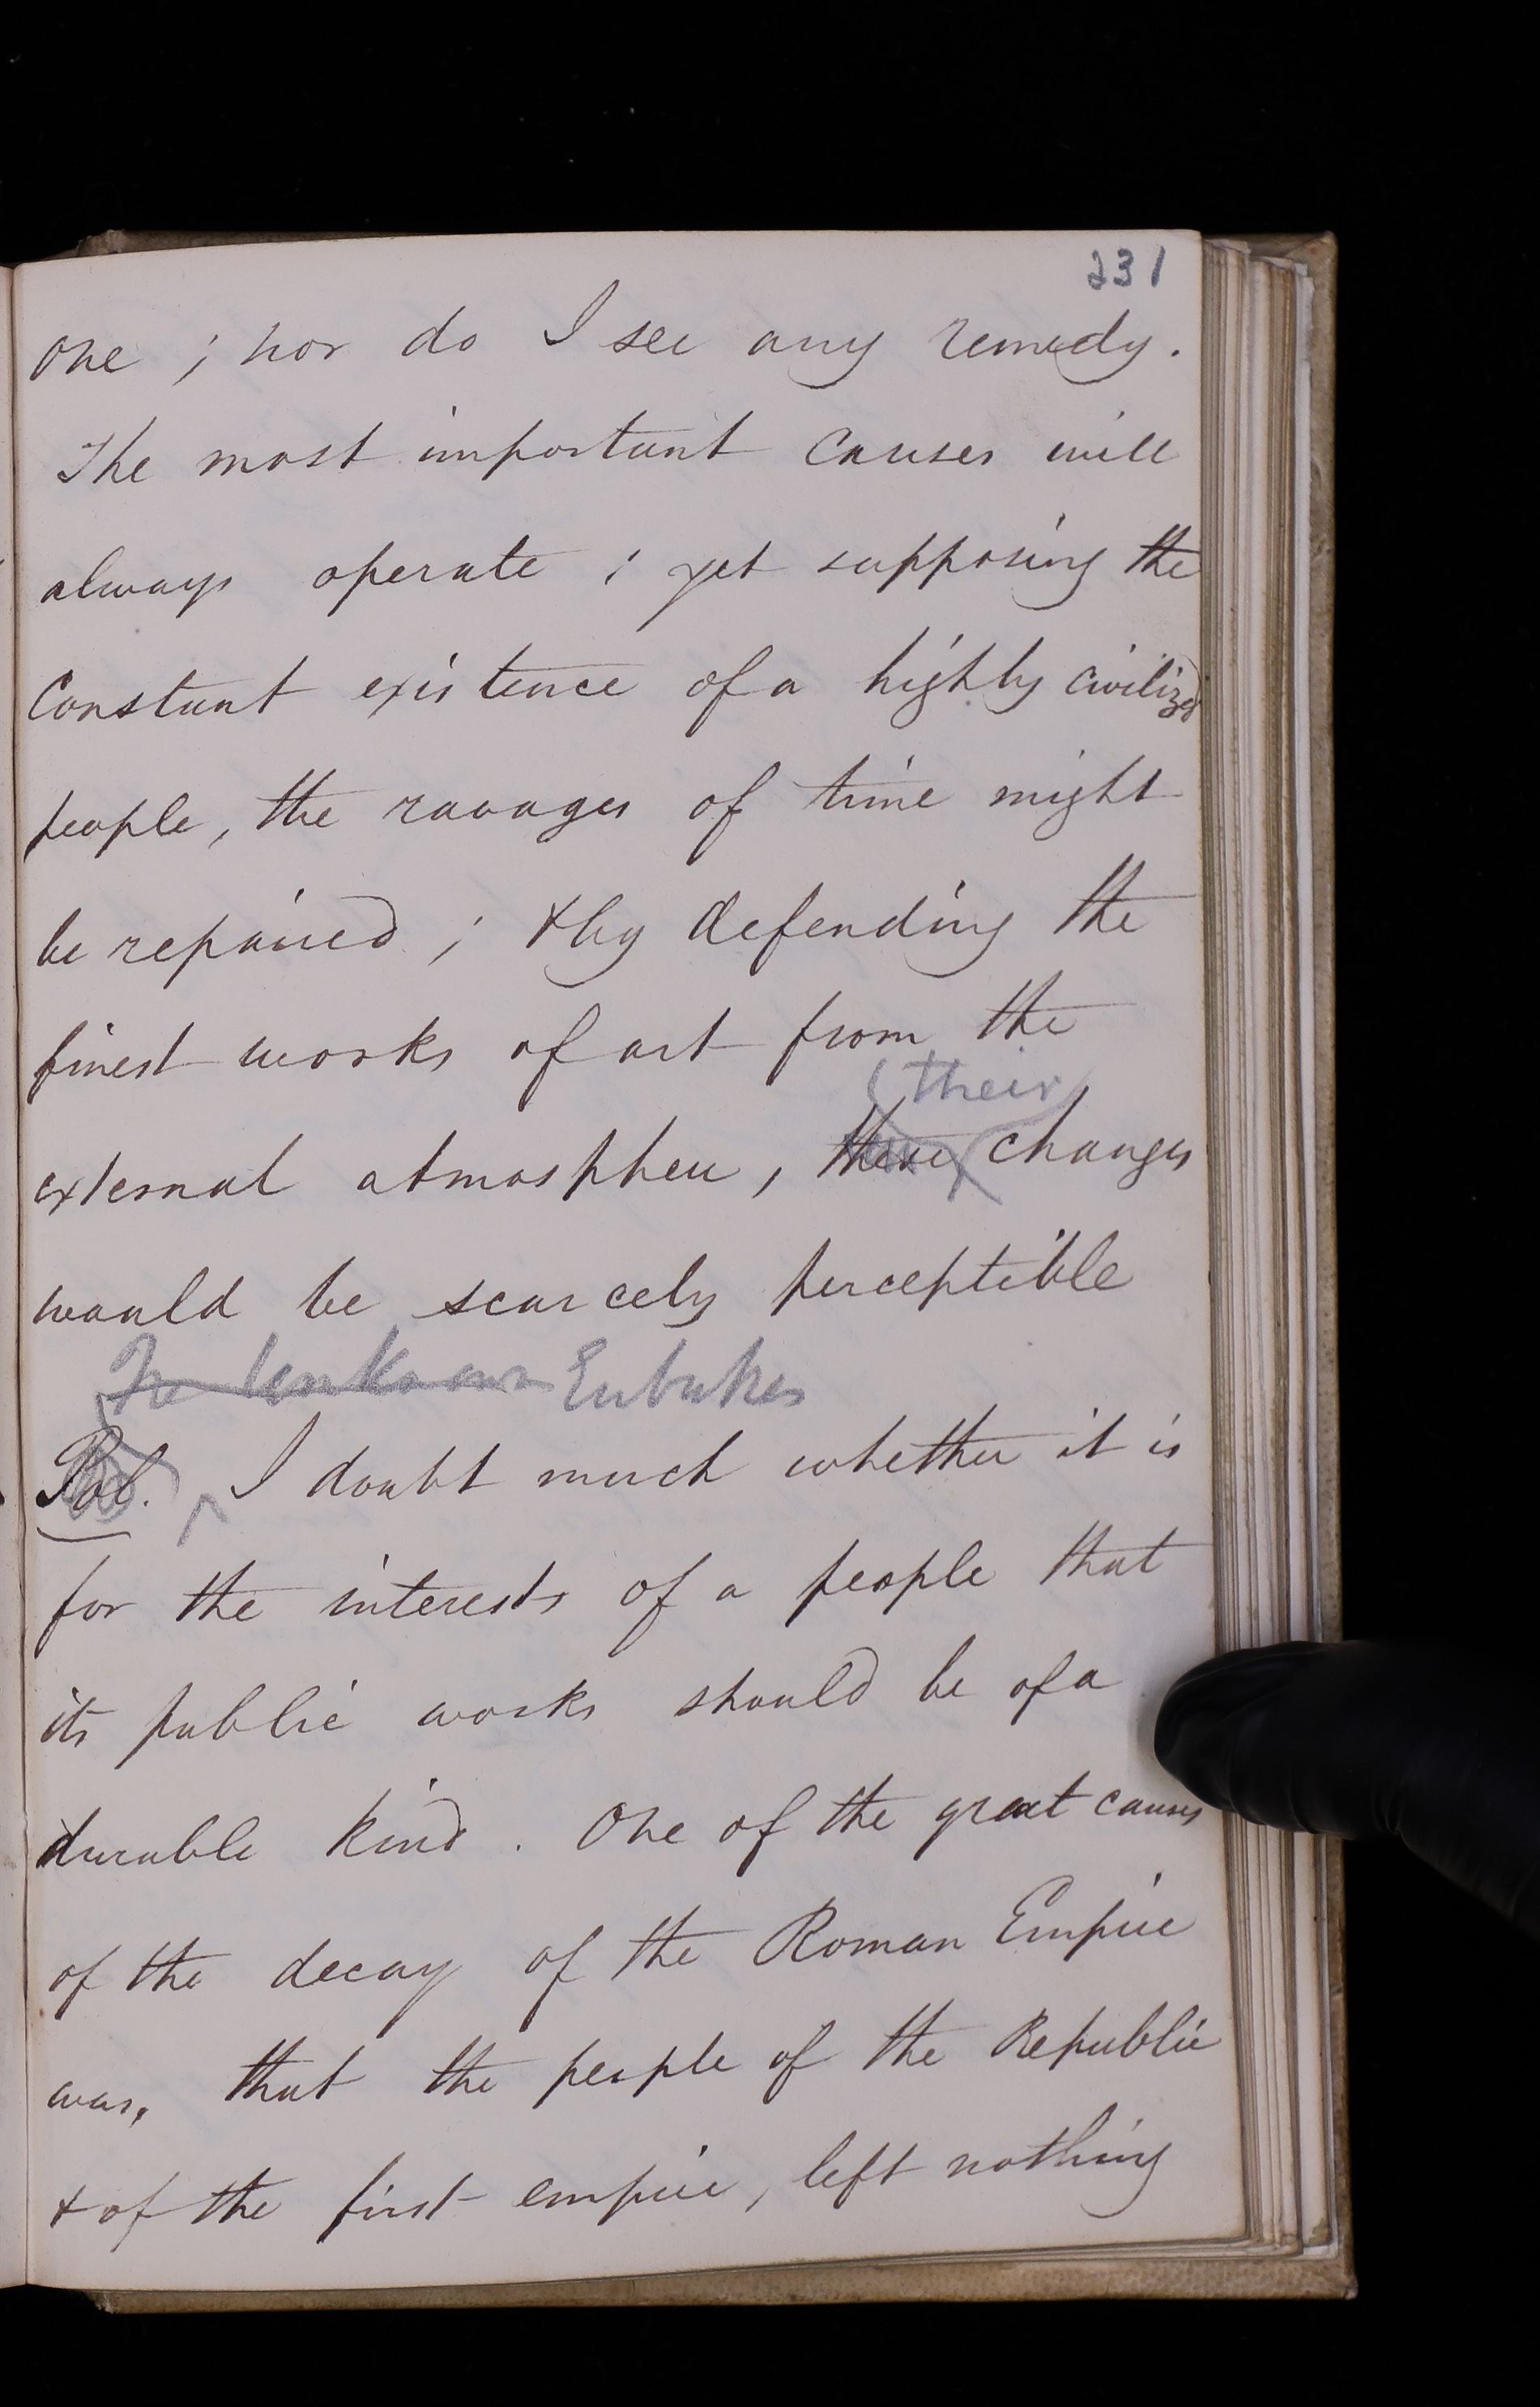 231
one ; nor do I see any remedy.
The most important causes will
always operate ; yet supposing the
Constant existence of a highly civilized
people, the ravages of time might
be repaired ; & by defending the
finest works of art from the
their
external atmosphere, these changes
would be scarcely perceptible
The Unknown Eubathes
Pol. ^ I doubt much whether it is
for the interests of a people that
its public works should be of a
durable kind. One of the great causes
of the decay of the Roman Empire
was, that the people of the Republic
& of the first empire, left nothing